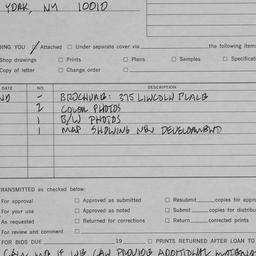 YORK, NY 10010
DING YOU Attached Under separate cover via the following items
Shop drawings Prints Plans Samples Specificat
Copy of letter Change order
DATE NO. DESCRIPTION
ND - BROCHURE: 375 LINCOLN PLACE
2 COLOR PHOTOS
1 B/W PHOTOS
1 MAP SHOWING NEW DEVELOPMENT
TRANSMITTED as checked below:
For approval Approved as submitted Resubmit copies for appro
For your use Approved as noted Submit copies for distribu
As requested Returned for corrections Return corrected prints
For review and comment
FOR BIDS DUE 19 PRINTS RETURNED AFTER LOAN TO
IF WE CAN PROVIDE ADDITIONAL MATERIA